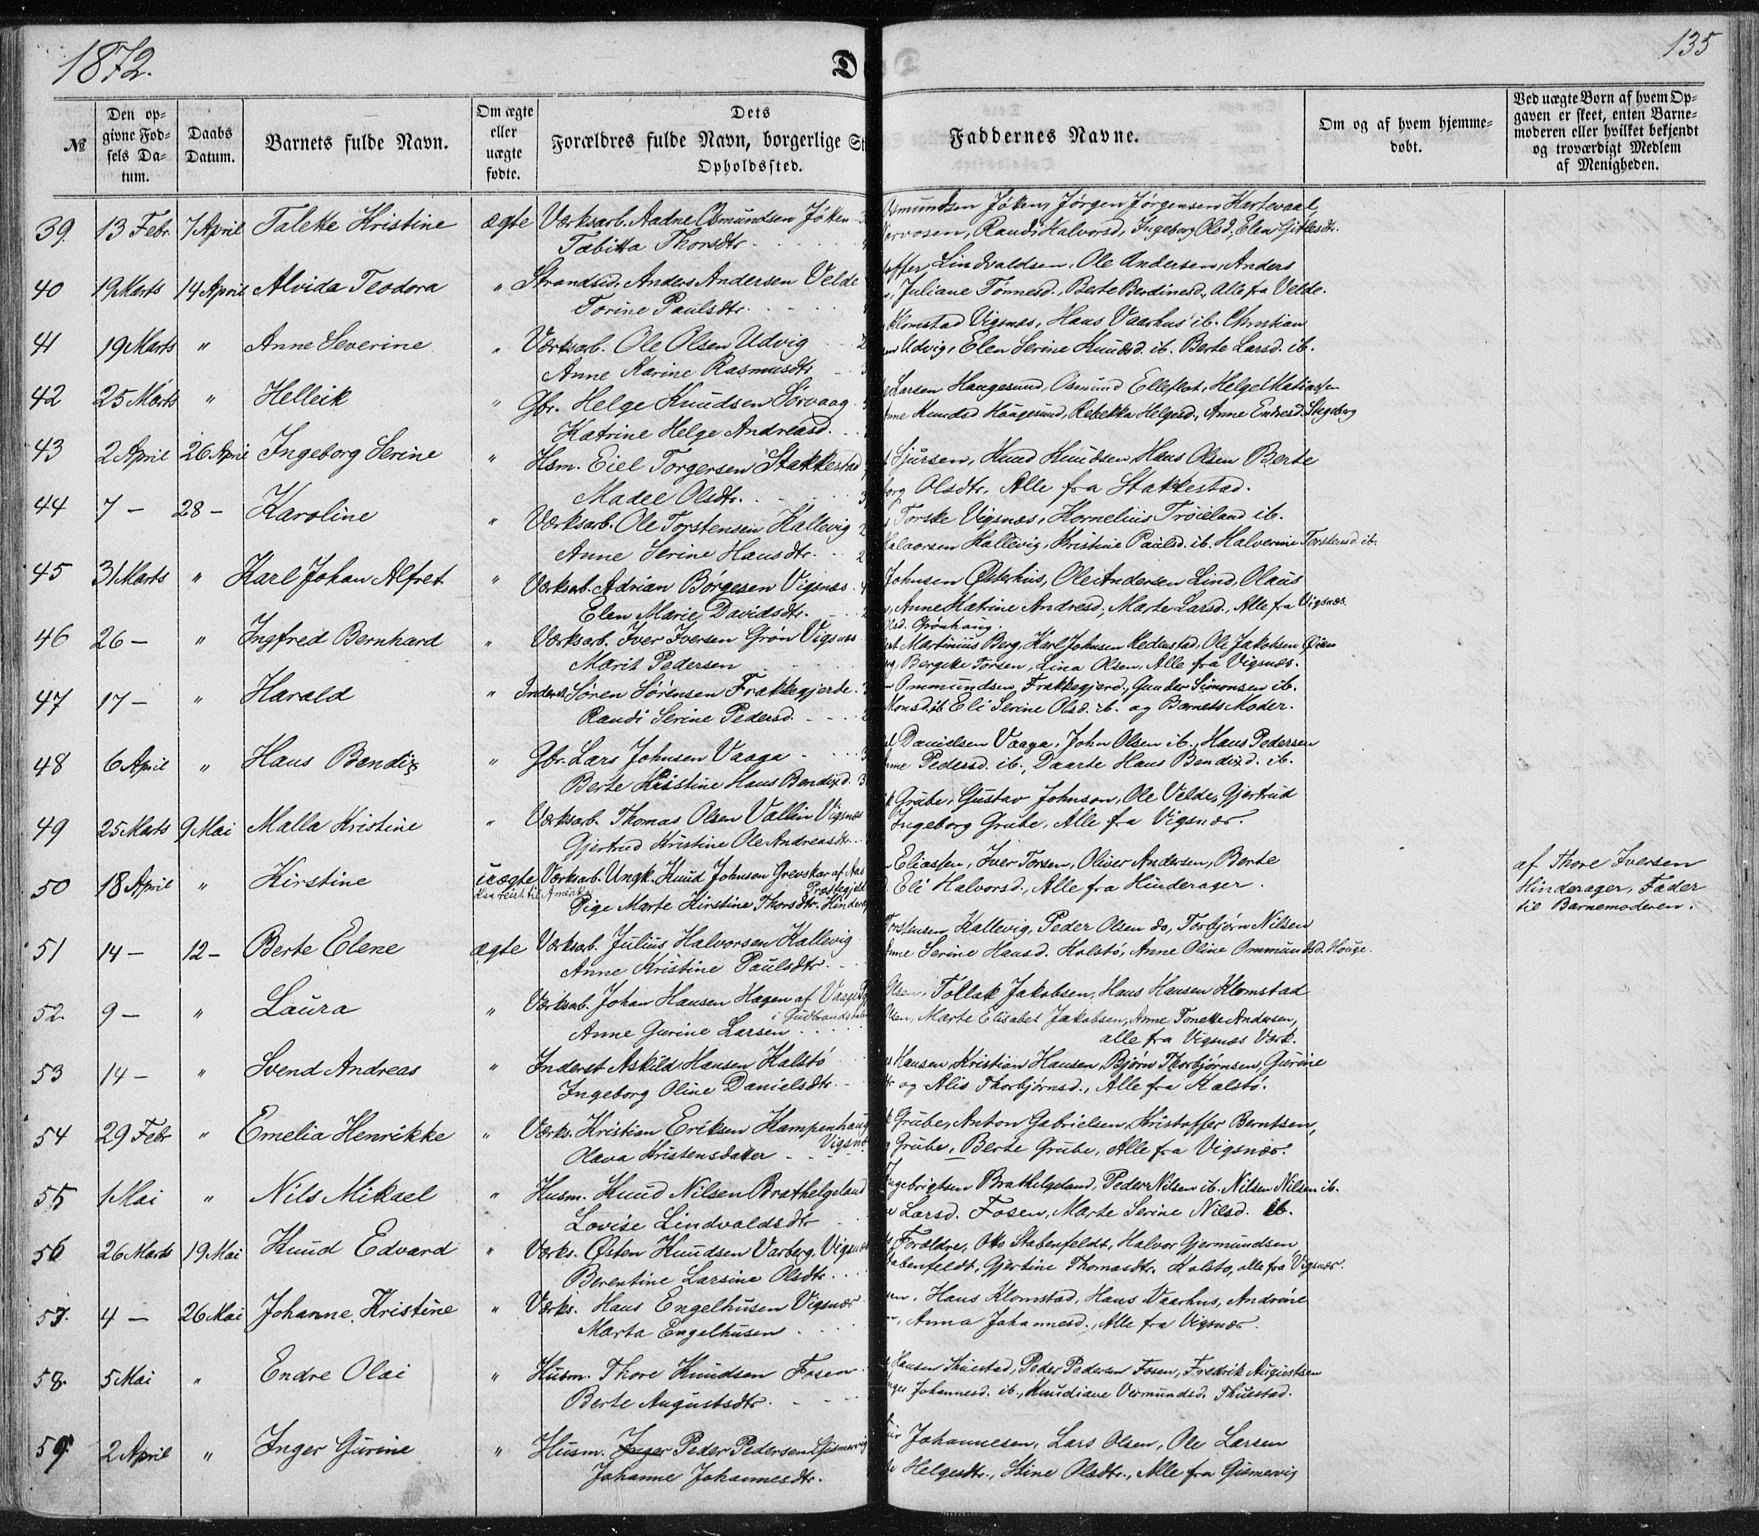 1872.
D
135
№
Den op-
givne Fød-
sels Da-
tum.
Daabs
Datum.
Barnets fulde Navn.
Om ægte
eller
uægte
fødte.
Dets
Forældres fulde Navn, borgerlige St
Opholdssted.
Faddernes Navne.
Om og af hvem hjemme-
døbt.
Ved uægte Børn af hvem Op-
gaven er skeet, enten Barne-
moderen eller hvilket bekjendt
og troværdigt Medlem
af Menigheden.
39. 13 Febr. 7 April Talette Kristine ægte Værksarb. Aadne Osmundsen Jøken
Tabitta Thorsdtr.
Osmundsen Jøken, Jørgen Jørgensen Hartevaal,
Randi Halvorsd, Ingeborg Olsd, Elen Gitlesdtr.
40 19 Marts 14 April Alvida Teodora " Strandsd. Anders Andersen Velde
Torine Paulsdtr.
Lindvaldsen, Ole Andersen, Anders
Juliane Tønnesd., Berte Berdinesd., Alle fra Velde.
41 19 Marts " Anne Severine " Værksarb. Ole Olsen Udvig
Anne Karine Rasmusdtr
Klomstad Vigsnæs, Hans Vaarhus ib. Christian
Udvig, Elen Serine Knudsd. ib. Berte Larsd. ib.
42 25 Marts " Helleik " Gbr. Helge Knudsen Sørvaag
Katrine Helge Andreasd.
Larsen Haugesund, Osmund Elleflot, Helge Matiassen
Knudsd Haugesund, Rebekka Helgesd., Anne Endresd. Stegaberg
43 2 April 26 April Ingeborg Serine " Hsm. Eiel Torgersen Stakkestad
Madel Olsdtr.
Sjursen, Knud Knudsen, Hans Olsen Berte
Olsdtr. Alle fra Stakkestad.
44 7 — 28 — Karoline " Værksarb. Ole Torstensen Kallevig
Anne Serine Hansdtr.
Torske Vigsnæs, Kornelius Trøieland ib.
Halvorsen Kallevig, Kristine Paulsd. ib. Halverine Torstensd ib.
45 31 Marts " Karl Johan Alfret " Værksarb. Adrian Børgesen Vigsnæs
Elen Marie Davidsdtr.
Johnsen Østerhus, Ole Andersen Lind, Olaus
Anne Katrine Andresd, Marte Larsd., Alle fra Vigsnæs.
46 26 — " Ingfred Bernhard " Værksarb. Iver Iversen Grøn Vigsnæs
Marit Pedersen
Grønhaug.
Martinius Berg, Karl Johnsen Hedenstad, Ole Jakobsen Øien
Torsen, Lina Olsen, Alle fra Vigsnæs.
47 17 — " Harald " Inderst. Søren Sørensen Frakkegjerde
Randi Serine Pedersd.
Ommundsen Frakkegjerd., Gunder Simonsen ib.
Monsd. ib Eli Serine Olsd. ib. og Barnets Moder.
48 6 April " Hans Bendix " Gbr. Lars Johnsen Vaaga
Berte Kristine Hans Bendixd.
Danielsen Vaaga, John Olsen ib., Hans Pedersen
Pedersd. ib., Daarte Hans Bendixd. ib.
49 25 Marts 9 Mai Malla Kristine " Værksarb. Thomas Olsen Vallin Vigsnæs
Gjertrud Kristine Ole Andreasdtr.
Grube, Gustav Johnson, Ole Velde, Gjertrud
Ingeborg Grube, Alle fra Vigsnæs.
50 18 April " Kirstine uægte Værksarb. Ungk. Knud Johnsen Grevskar af Aas
Han reist til Amerika
Pige Marte Kirstine Thorsdtr. Hinderager
Eliassen, Iver Torsen, Oliver Andersen, Berte
Eli Halvorsd., Alle fra Hinderager.
af Thore Iversen
Hinderager, Fader
til Barnemoderen.
51 14 — 12 — Berte Elene ægte Værksarb. Julius Halvorsen Kallevig
Anne Kristine Paulsdtr.
Torstensen Kallevig, Peder Olsen do, Torbjørn Nilsen
Serine Hansd. Kalstø, Anne Oline Ommundsd. Hauge.
52. 9 — " Laura " Værksarb. Johan Hansen Hagen af Vaage
i Gudbrandsdalen
Anne Gurine Larsen
Olsen, Tollak Jakobsen, Hans Hansen Klomstad
Marte Elisabet Jakobsen, Anne Tonette Andersen,
alle fra Vigsnæs Værk.
53 14 — " Svend Andreas " Inderst Askild Hansen Kalstø
Ingeborg Oline Danielsdtr
Hansen, Kristian Hansen, Bjørn Thorbjørnsen, Gurine
og Alis Thorbjørnsd., Alle fra Kalstø.
54 29 Febr " Emelia Henrikke " Værks. Kristian Eriksen Kampenhaug
Vigsnæs
Olava Kristensdatter
Grube, Anton Gabrielsen, Kristoffer Berntsen,
Grube, Berte Grube, Alle fra Vigsnæs.
55 1 Mai " Nils Mikael " Husm. Knud Nilsen Brathelgeland
Lovise Lindvaldsdtr
Ingebrigtsen Brathelgeland, Peder Nilsen ib. Nilsen Nilsen ib.
Larsd. Fosen, Marte Serine Nilsd. ib.
56 26 Marts 19 Mai Knud Edvard " Værks. Østen Knudsen Varberg, Vigsnæs
Berentine Larsine Olsdtr.
Forældre, Otto Stabenfeldt, Halvor Gjermundsen
Stabenfeldt, Gjertine Thomasdtr. Kalstø, alle fra Vigsnæs.
57. 4 — 26 Mai Johanne Kristine " Værks. Hans Engelhusen Vigsnæs
Marta Engelhusen
Hans Klomstad, Hans Vaarhus, Andrine
Anna Johannesd., Alle fra Vigsnæs.
58. 5 Mai " Endre Olai " Husm. Thore Knudsen Fosen
Berte Augustsdtr.
Hansen Thuestad, Peder Pedersen Fosen, Fredrik Augustsen
Johannesd. ib., Knudiane Vermundsd. Thuestad.
59. 2 April " Inger Gurine " Husm. Inger Peder Pedersen Gismervig
Johanne Johannesdtr.
Johannesen, Lars Olsen, Ole Larsen
Helgesdtr., Stine Olsdtr., Alle fra Gismervig